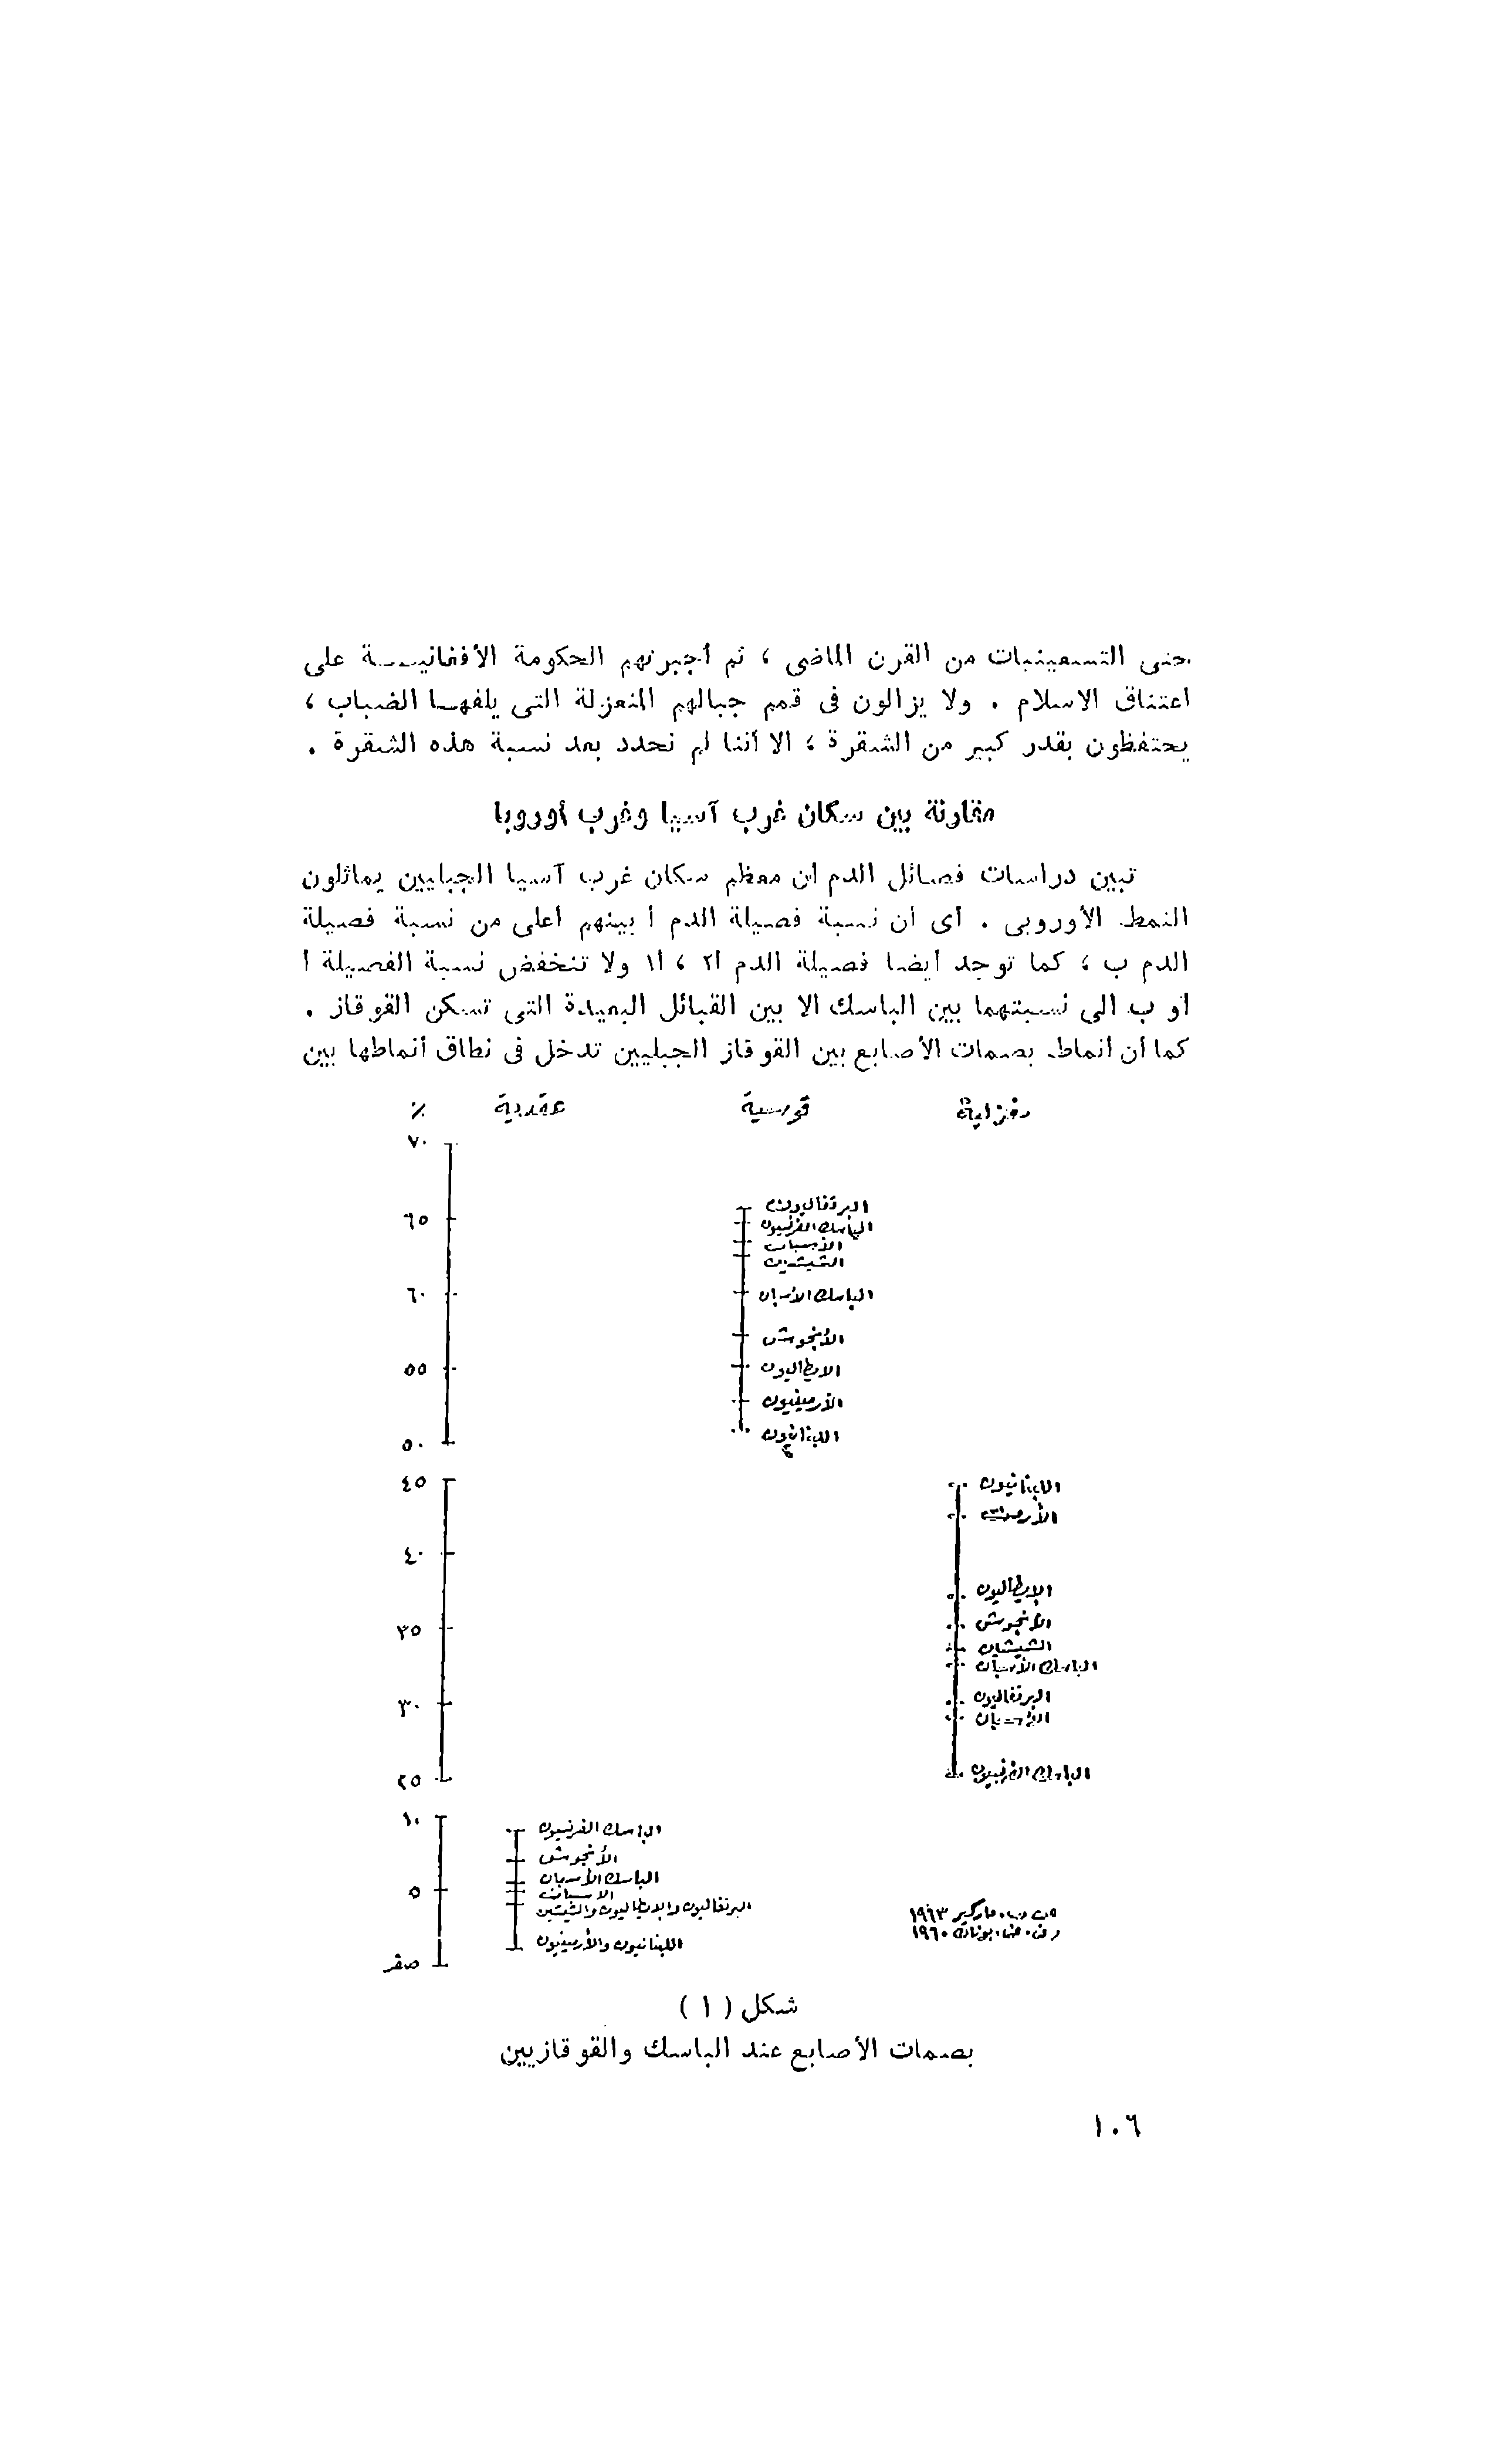 حتى التسعينيات من القرن الماضى ، ثم أجبرتهم الحكومة الأفغانيـــة على
اعتناق الاسلام . ولا يزالون فى قمم جبالهم المنعزلة التى يلفهـا الضباب ،
يحتفظون بقدر كبير من الشقرة ، الا أننا لم نحدد بعد نسبة هذه الشقرة .
مقارنة بين سكان غرب آسيا وغرب أوروبا
تبين دراسات فصائل الدم ان معظم سكان غرب آسيا الجبليين يماثلون
النمط الأوروبى . أى أن نسبة فصيلة الدم أ بينهم أعلى من نسبة فصيلة
الدم ب ، كما توجد أيضا فصيلة الدم أ٢ ، أ١ ولا تنخفض نسبة الفصيلة أ
أو ب الى نسبتهما بين الباسك الا بين القبائل البعيدة التى تسكن القوقاز .
كما أن أنماط بصمات الأصابع بين القوقاز الجبليين تدخل فى نطاق أنماطها بين
قوسية
عقدية
٪
٧٠
البرتغاليون
٦٥
الباسك الفرنسيون
الأسبان
الشيشين
٦٠
الباسك الأسبان
الأنجوش
٥٥
الايطاليون
الأرمينيون
٥٠
اللبنانيون
٤٥
اللبنانيون
٤٠
الإيطاليون
٣٥
الأنجوش
الشيشان
الباسك الأسبان
٣٠
البرتغاليون
الأسبان
٢٥
الباسك الفرنسيون
١٠
الباسك الفرنسيون
الأنجوش
الباسك الأسبان
٥
الاسبان
البرتغاليون والايطاليون والشيشين
اللبنانيون والأرمينيون
صفر
ماركير ١٩٦٣
١٩٦٠
شكل ( ١ )
بصمات الأصابع عند الباسك والقوقازيين
١٠٦